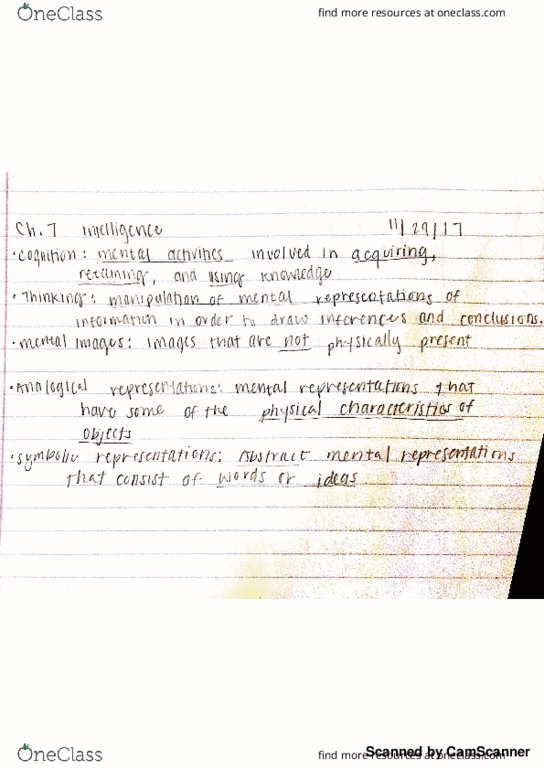 OneClass
find more resources at oneclass.com
Ch. 7 Intelligence 11/29/17
• cognition: mental activities involved in acquiring,
retaining, and using knowledge
• Thinking: manipulation of mental representations of
information in order to draw inferences and conclusions.
• mental images: images that are not physically present
• Analogical representations: mental representations that
have some of the physical characteristics of
objects
• symbolic representations: Abstract mental representations
that consist of words or ideas
OneClass
find more resources at oneclass.com
Scanned by CamScanner